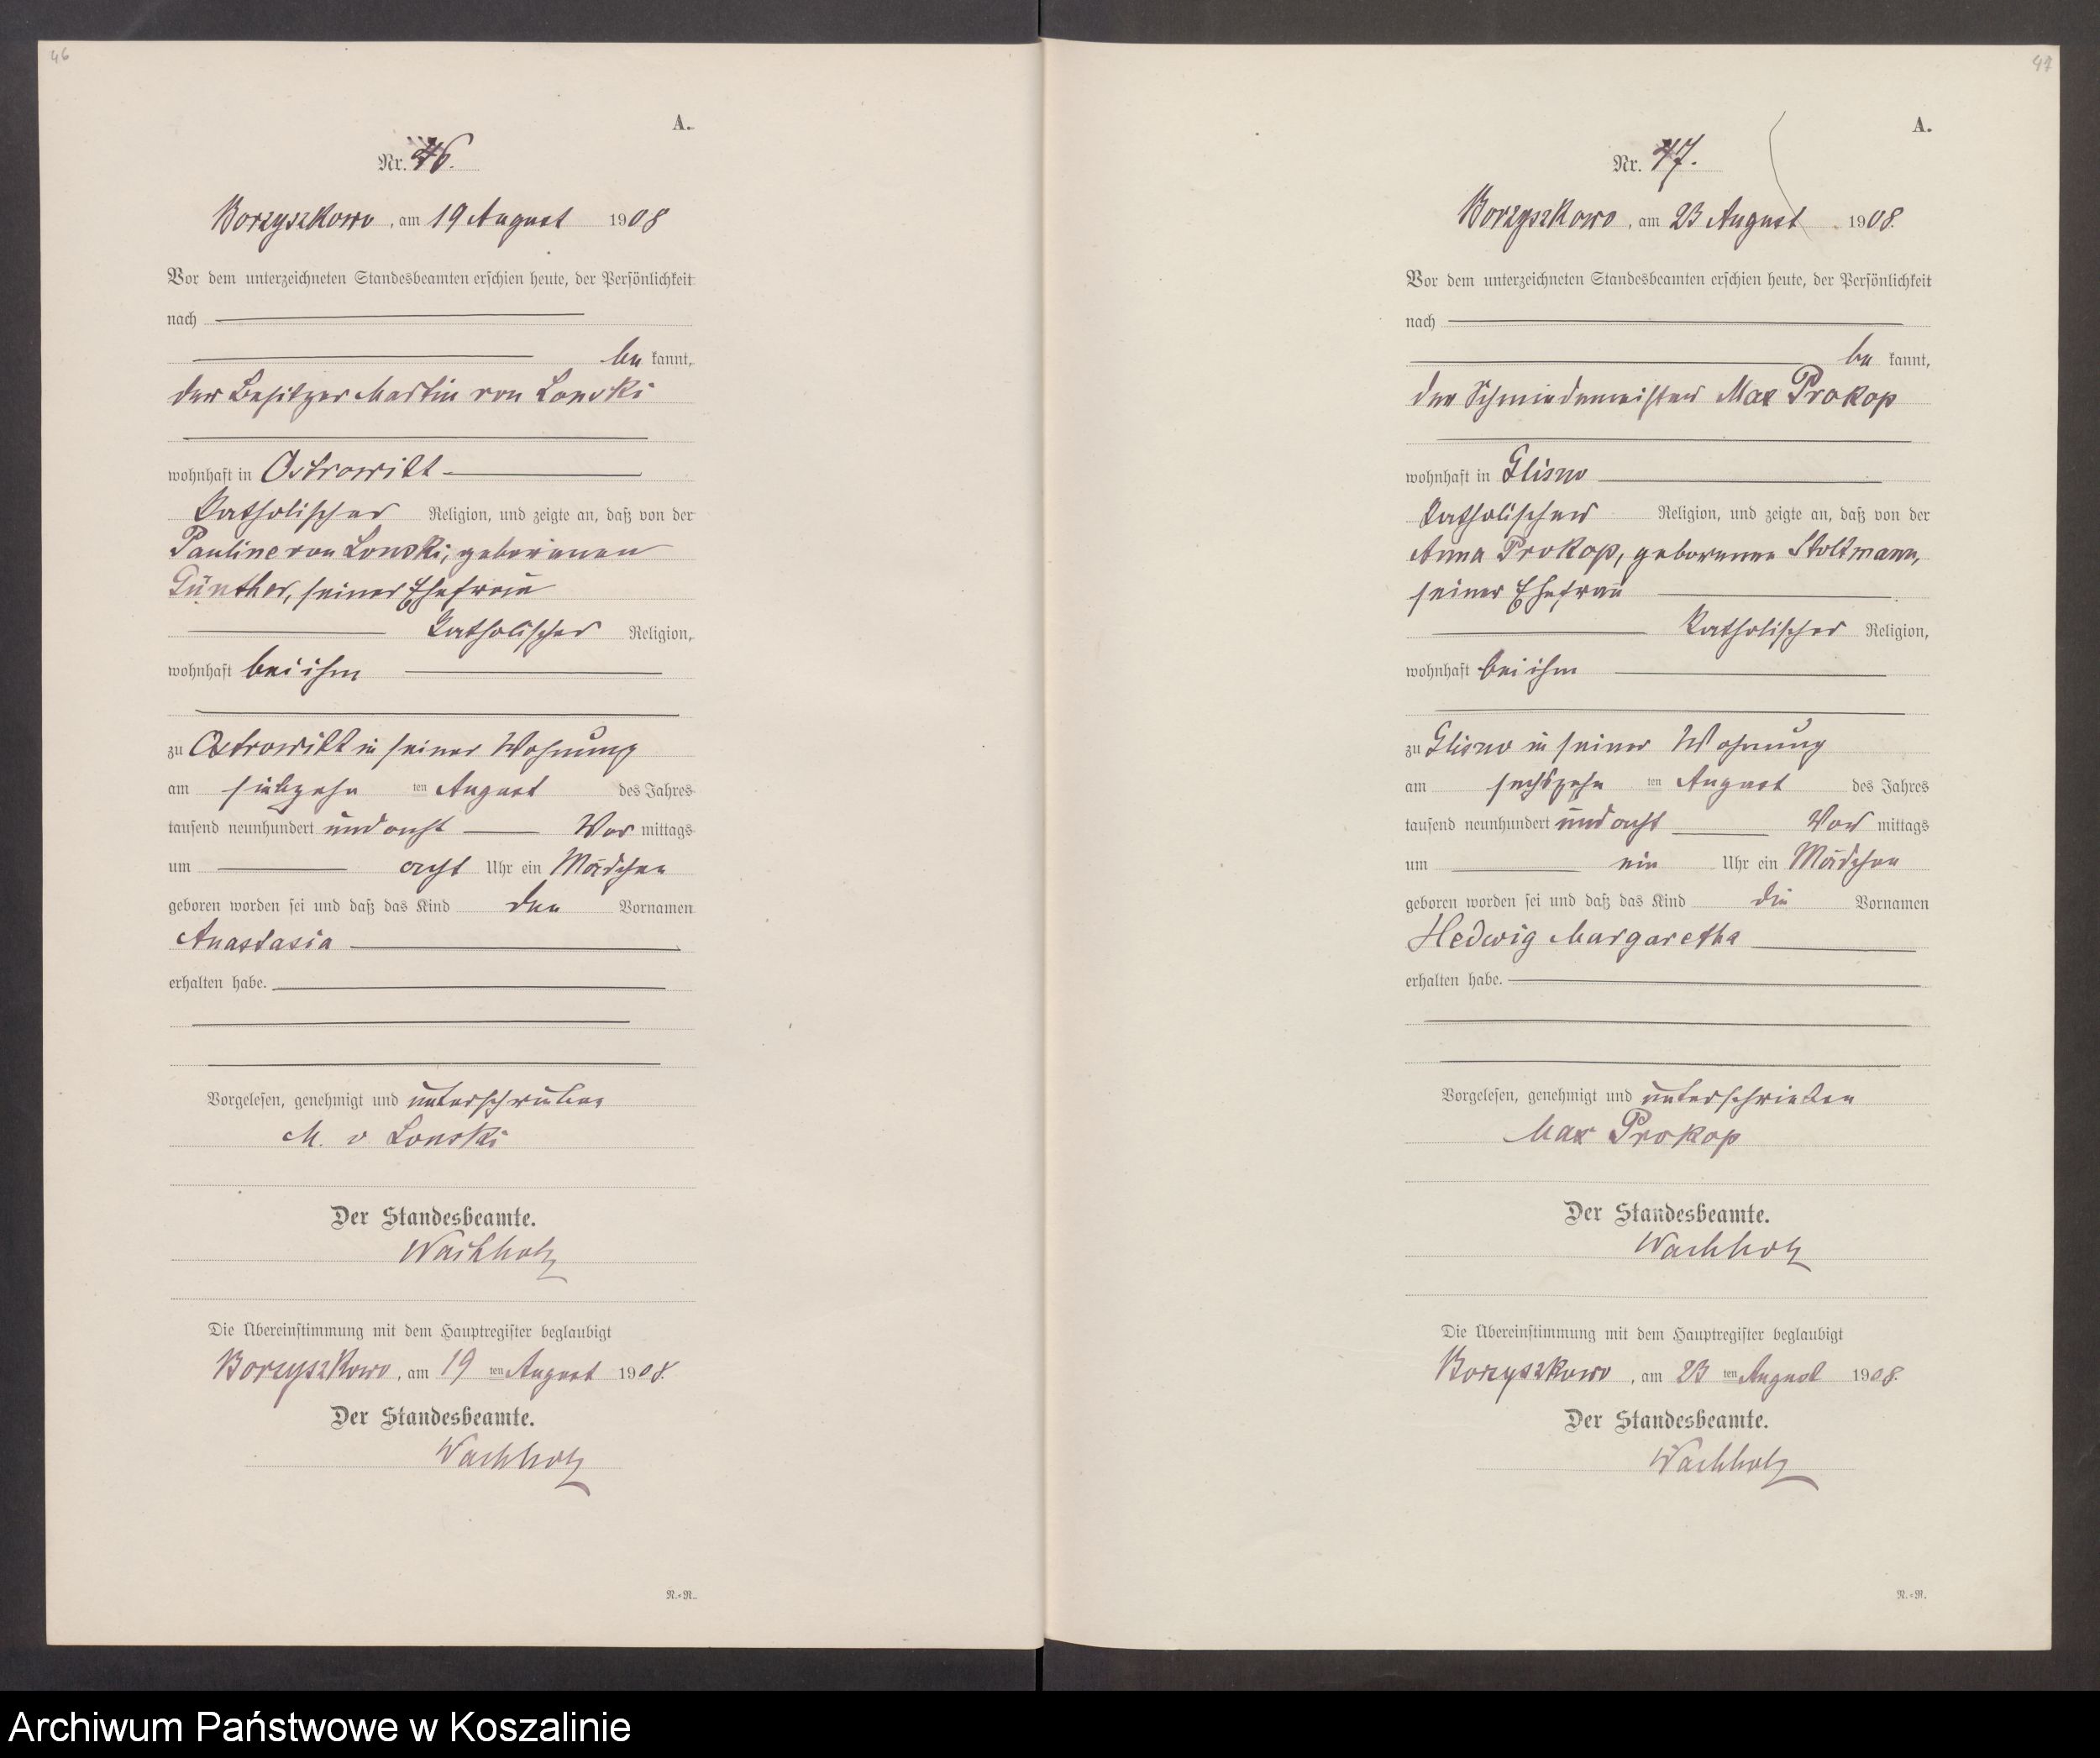 46
A.
Nr. 46.
Borzyszkowo, am 19 August 1908
Vor dem unterzeichneten Standesbeamten erschien heute, der Persönlichkeit
nach
be kannt,
der Besitzer Martin von Lonski
wohnhaft in Ostrowitt
Katholischer Religion, und zeigte an, daß von der
Pauline von Lonski, geborenen
Günther, seiner Ehefrau
Katholischer Religion,
wohnhaft bei ihm
zu Ostrowitt in seiner Wohnung
am siebzehn ten August des Jahres
tausend neunhundert und acht Vor mittags
um acht Uhr ein Mädchen
geboren worden sei und daß das Kind den Vornamen
Anastasia
erhalten habe.
Vorgelesen, genehmigt und unterschrieben
M. v Lonski
Der Standesbeamte.
Wachholz
Die Übereinstimmung mit dem Hauptregister beglaubigt
Borzyszkowo, am 19 ten August 1908.
Der Standesbeamte.
Wachholz
N.=N.
47
A.
Nr. 47.
Borzyszkowo, am 23 August 1908.
Vor dem unterzeichneten Standesbeamten erschien heute, der Persönlichkeit
nach
be kannt,
der Schmiedemeister Max Prokop
wohnhaft in Glisno
Katholischer Religion, und zeigte an, daß von der
Anna Prokop, geborenen Stoltmann,
seiner Ehefrau
Katholischer Religion,
wohnhaft bei ihm
zu Glisno in seiner Wohnung
am sechszehn ten August des Jahres
tausend neunhundert und acht Vor mittags
um ein Uhr ein Mädchen
geboren worden sei und daß das Kind die Vornamen
Hedwig Margaretha
erhalten habe.
Vorgelesen, genehmigt und unterschrieben
Max Prokop
Der Standesbeamte.
Wachholz
Die Übereinstimmung mit dem Hauptregister beglaubigt
Borzyszkowo, am 23 ten August 1908.
Der Standesbeamte.
Wachholz
N.=N.
Archiwum Państwowe w Koszalinie